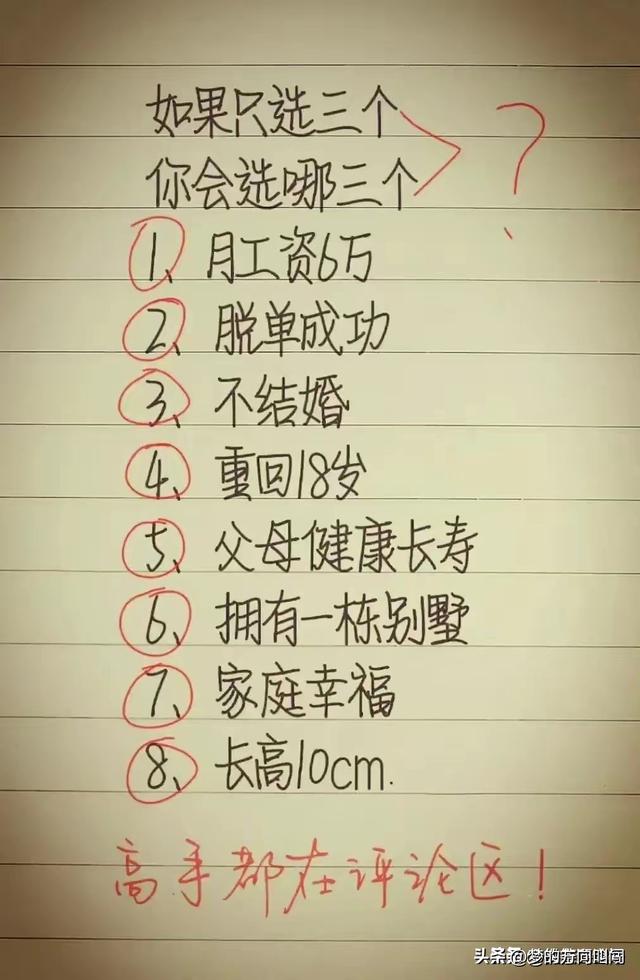 如果只选三个
你会选哪三个 ?
1、月工资6万
2、脱单成功
3、不结婚
4、重回18岁
5、父母健康长寿
6、拥有一栋别墅
7、家庭幸福
8、长高10cm.
高手都在评论区!
头条 @梦的方向叫闯